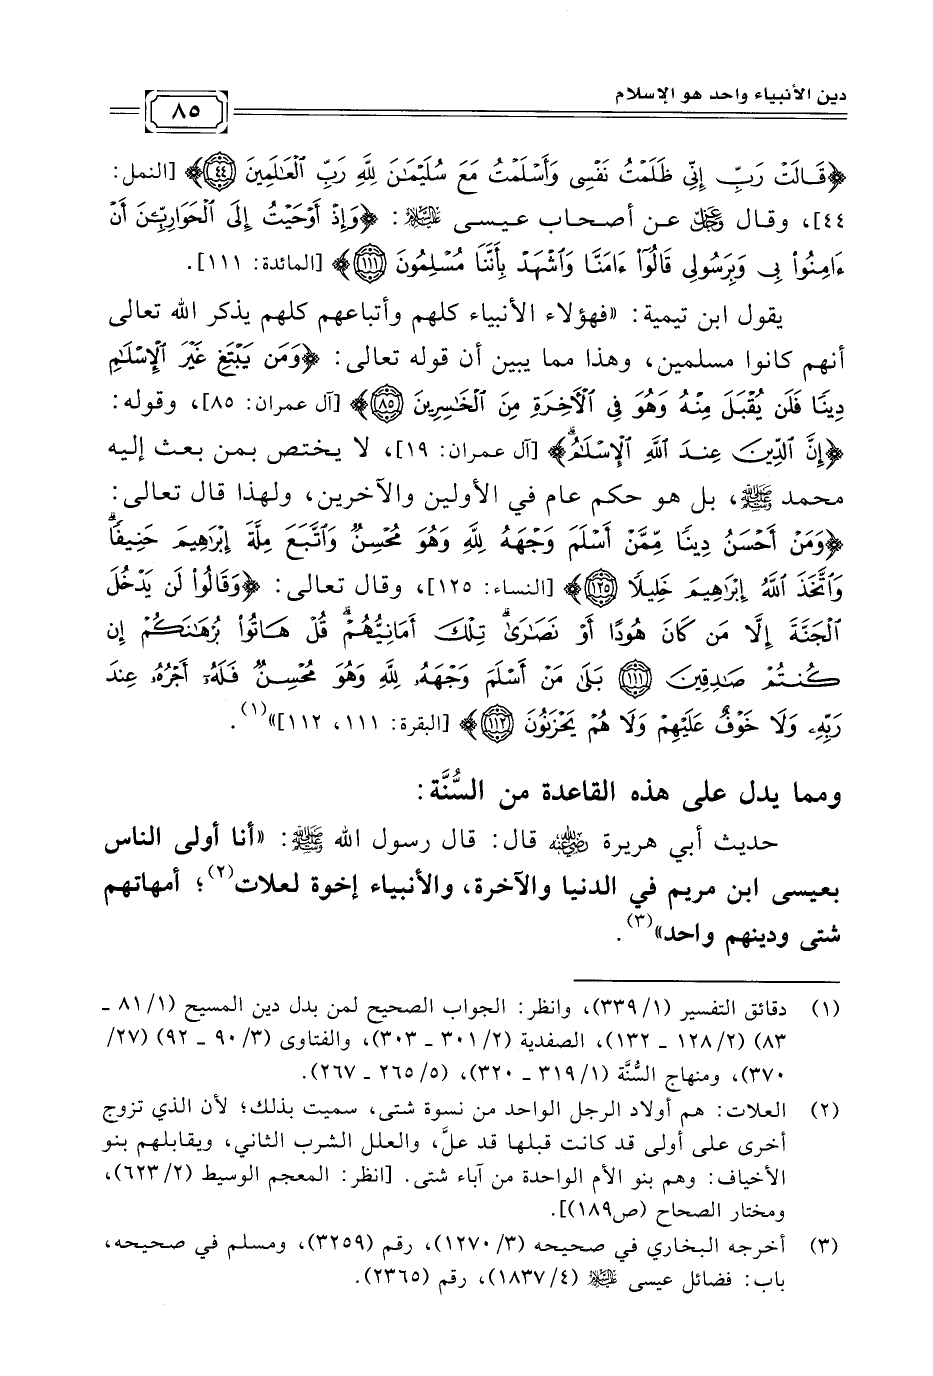 دين الأنبياء واحد هو الإسلام
٨٥
﴿قَالَتْ رَبِّ إِنِّي ظَلَمْتُ نَفْسِي وَأَسْلَمْتُ مَعَ سُلَيْمَٰنَ لِلَّهِ رَبِّ ٱلْعَٰلَمِينَ ٤٤﴾ [النمل:
٤٤]، وقال ﷻ عن أصحاب عيسى ﵇: ﴿وَإِذْ أَوْحَيْتُ إِلَى ٱلْحَوَارِيِّۦنَ أَنْ
ءَامِنُوا۟ بِي وَبِرَسُولِي قَالُوٓا۟ ءَامَنَّا وَٱشْهَدْ بِأَنَّنَا مُسْلِمُونَ ١١١﴾ [المائدة: ١١١].
يقول ابن تيمية: «فهؤلاء الأنبياء كلهم وأتباعهم كلهم يذكر الله تعالى
أنهم كانوا مسلمين، وهذا مما يبين أن قوله تعالى: ﴿وَمَن يَبْتَغِ غَيْرَ ٱلْإِسْلَٰمِ
دِينًا فَلَن يُقْبَلَ مِنْهُ وَهُوَ فِي ٱلْءَاخِرَةِ مِنَ ٱلْخَٰسِرِينَ ٨٥﴾ [آل عمران: ٨٥]، وقوله:
﴿إِنَّ ٱلدِّينَ عِندَ ٱللَّهِ ٱلْإِسْلَٰمُ﴾ [آل عمران: ١٩]، لا يختص بمن بعث إليه
محمد ﷺ، بل هو حكم عام في الأولين والآخرين، ولهذا قال تعالى:
﴿وَمَنْ أَحْسَنُ دِينًا مِّمَّنْ أَسْلَمَ وَجْهَهُ لِلَّهِ وَهُوَ مُحْسِنٌ وَٱتَّبَعَ مِلَّةَ إِبْرَٰهِيمَ حَنِيفًا
وَٱتَّخَذَ ٱللَّهُ إِبْرَٰهِيمَ خَلِيلًا ١٢٥﴾ [النساء: ١٢٥]، وقال تعالى: ﴿وَقَالُوا۟ لَن يَدْخُلَ
ٱلْجَنَّةَ إِلَّا مَن كَانَ هُودًا أَوْ نَصَٰرَىٰ تِلْكَ أَمَانِيُّهُمْ قُلْ هَاتُوا۟ بُرْهَٰنَكُمْ إِن
كُنتُمْ صَٰدِقِينَ ١١١ بَلَىٰ مَنْ أَسْلَمَ وَجْهَهُۥ لِلَّهِ وَهُوَ مُحْسِنٌ فَلَهُۥٓ أَجْرُهُۥ عِندَ
رَبِّهِۦ وَلَا خَوْفٌ عَلَيْهِمْ وَلَا هُمْ يَحْزَنُونَ ١١٢﴾ [البقرة: ١١١، ١١٢]»(١).
ومما يدل على هذه القاعدة من السُّنَّة:
حديث أبي هريرة ﵁ قال: قال رسول الله ﷺ: «أنا أولى الناس
بعيسى ابن مريم في الدنيا والآخرة، والأنبياء إخوة لعلات(٢)؛ أمهاتهم
شتى ودينهم واحد»(٣).
(١) دقائق التفسير (١/ ٣٣٩)، وانظر: الجواب الصحيح لمن بدل دين المسيح (١/ ٨١ ـ
٨٣) (٢/ ١٢٨ ـ ١٣٢)، الصفدية (٢/ ٣٠١ ـ ٣٠٣)، والفتاوى (٣/ ٩٠ ـ ٩٢) (٢٧/
٣٧٠)، ومنهاج السُّنَّة (١/ ٣١٩ ـ ٣٢٠)، (٥/ ٢٦٥ ـ ٢٦٧).
(٢) العلات: هم أولاد الرجل الواحد من نسوة شتى، سميت بذلك؛ لأن الذي تزوج
أخرى على أولى قد كانت قبلها قد علَّ، والعلل الشرب الثاني، ويقابلهم بنو
الأخياف: وهم بنو الأم الواحدة من آباء شتى. [انظر: المعجم الوسيط (٢/ ٦٢٣)،
ومختار الصحاح (ص١٨٩)].
(٣) أخرجه البخاري في صحيحه (٣/ ١٢٧٠)، رقم (٣٢٥٩)، ومسلم في صحيحه،
باب: فضائل عيسى ﵇ (٤/ ١٨٣٧)، رقم (٢٣٦٥).